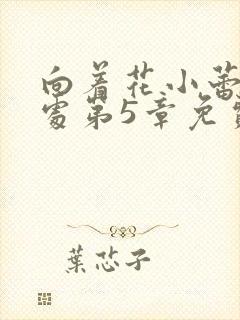 向着花小蕾
处第5章免
葉芯子